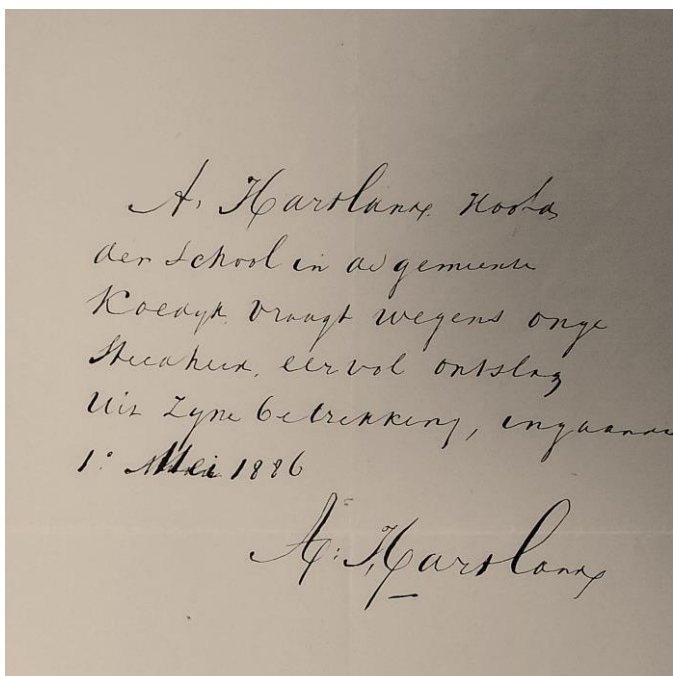 A. Hartland Hoofd
der School in de gemeente
Koedyk vraagt wegens onge
steldheid, eervol ontslag
uit zyne betrekking, ingaande
1º Mei 1886
A: Hartland